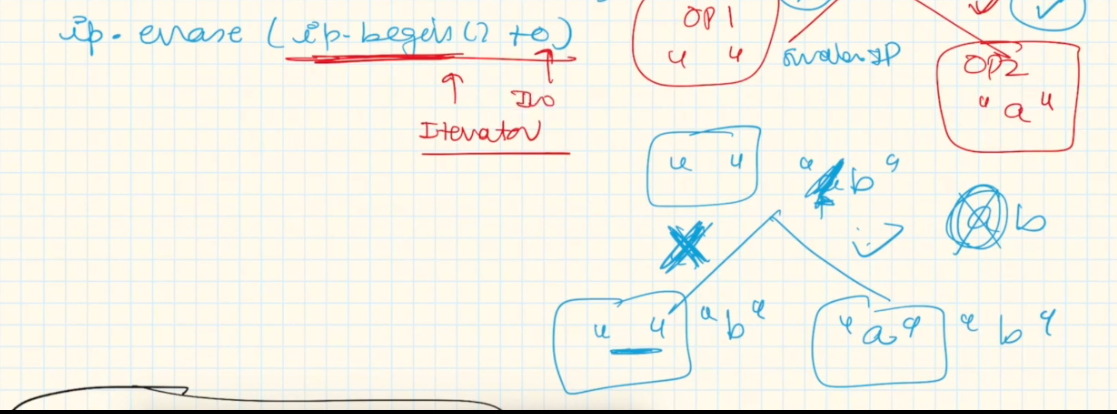 ip. erase (ip.begin() +0)
Ino
Iterator
OP1
" "
smaller IP
OP2
"a"
" "
"ab"
ab
" " "b"
"a" "b"